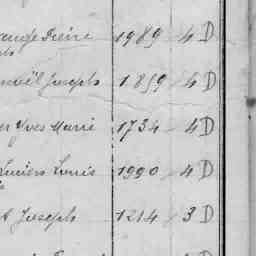 Pierre 1989 4 D
Joseph 1859 4 D
Yves Marie 1734 4 D
Lucien Louis 1990 4 D
Joseph 1214 3 D